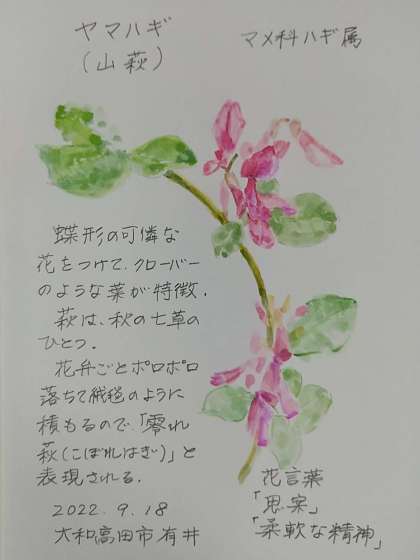 ヤマハギ
(山萩)
マメ科ハギ属
蝶形の可憐な
花をつけて、クローバー
のような葉が特徴.
萩は、秋の七草の
ひとつ.
花弁ごとポロポロ
落ちて絨毯のように
積もるので、「零れ
萩(こぼれはぎ)」と
表現される.
2022.9.18
大和高田市有井
花言葉
「思案」
「柔軟な精神」